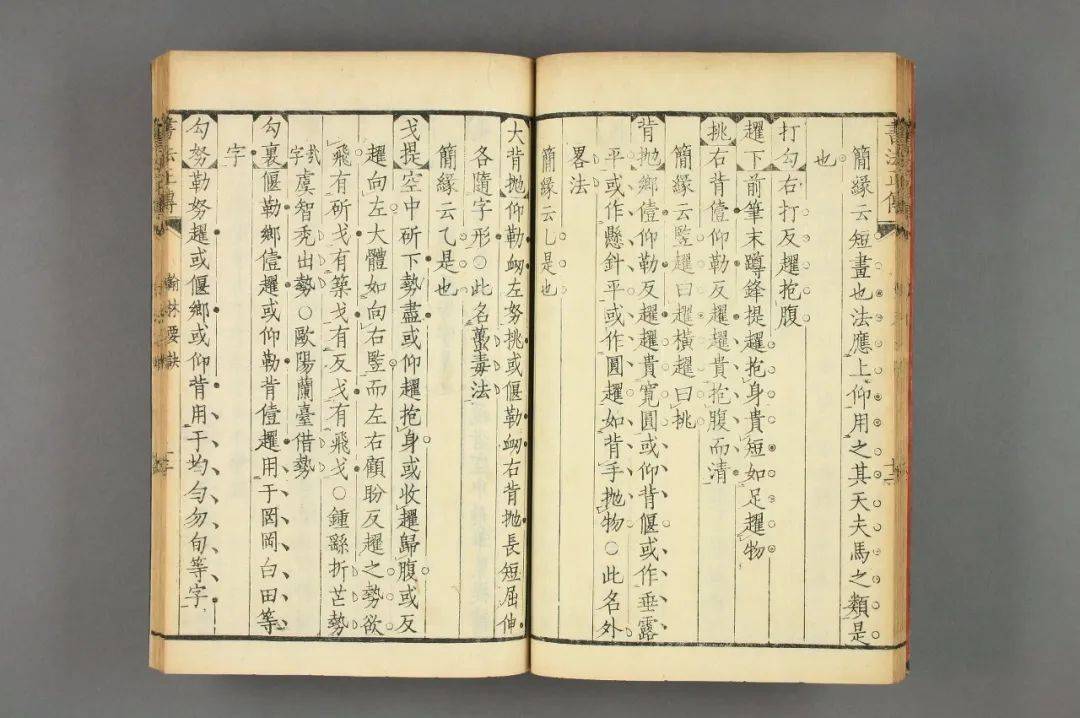 書法正傳
簡縁云短畫也法應上仰用之其天夫馬之類是
也
打勾右打反趯抱腹
趯下前筆末蹲鋒提趯抱身貴短如足趯物
挑右背僼仰勒反趯趯貴抱腹而清
簡縁云豎趯曰趯橫趯曰挑
背拋鄉僼仰勒反趯趯貴寬圓或仰背偃或作垂露
平或作懸針平或作圓趯如背手拋物○此名外
畧法
簡縁云乚是也
大背拋仰勒衂左努挑或偃勒衂右背拋長短屈伸
各隨字形○此名蠆毒法
簡縁云乙是也
戈提空中斫下勢盡或仰趯抱身或收趯歸腹或反
趯向左大體如向右豎而左右顧盼反趯之勢欲
飛有斫戈有築戈有反戈有飛戈○鍾繇折芒勢
字虞智禿出勢○歐陽蘭臺借勢
勾裏偃勒鄉僼趯或仰勒背僼趯用于岡罔白田等
字
勾努勒努趯或偃鄉或仰背用于均勻勿旬等字
書法正傳
翰林要訣